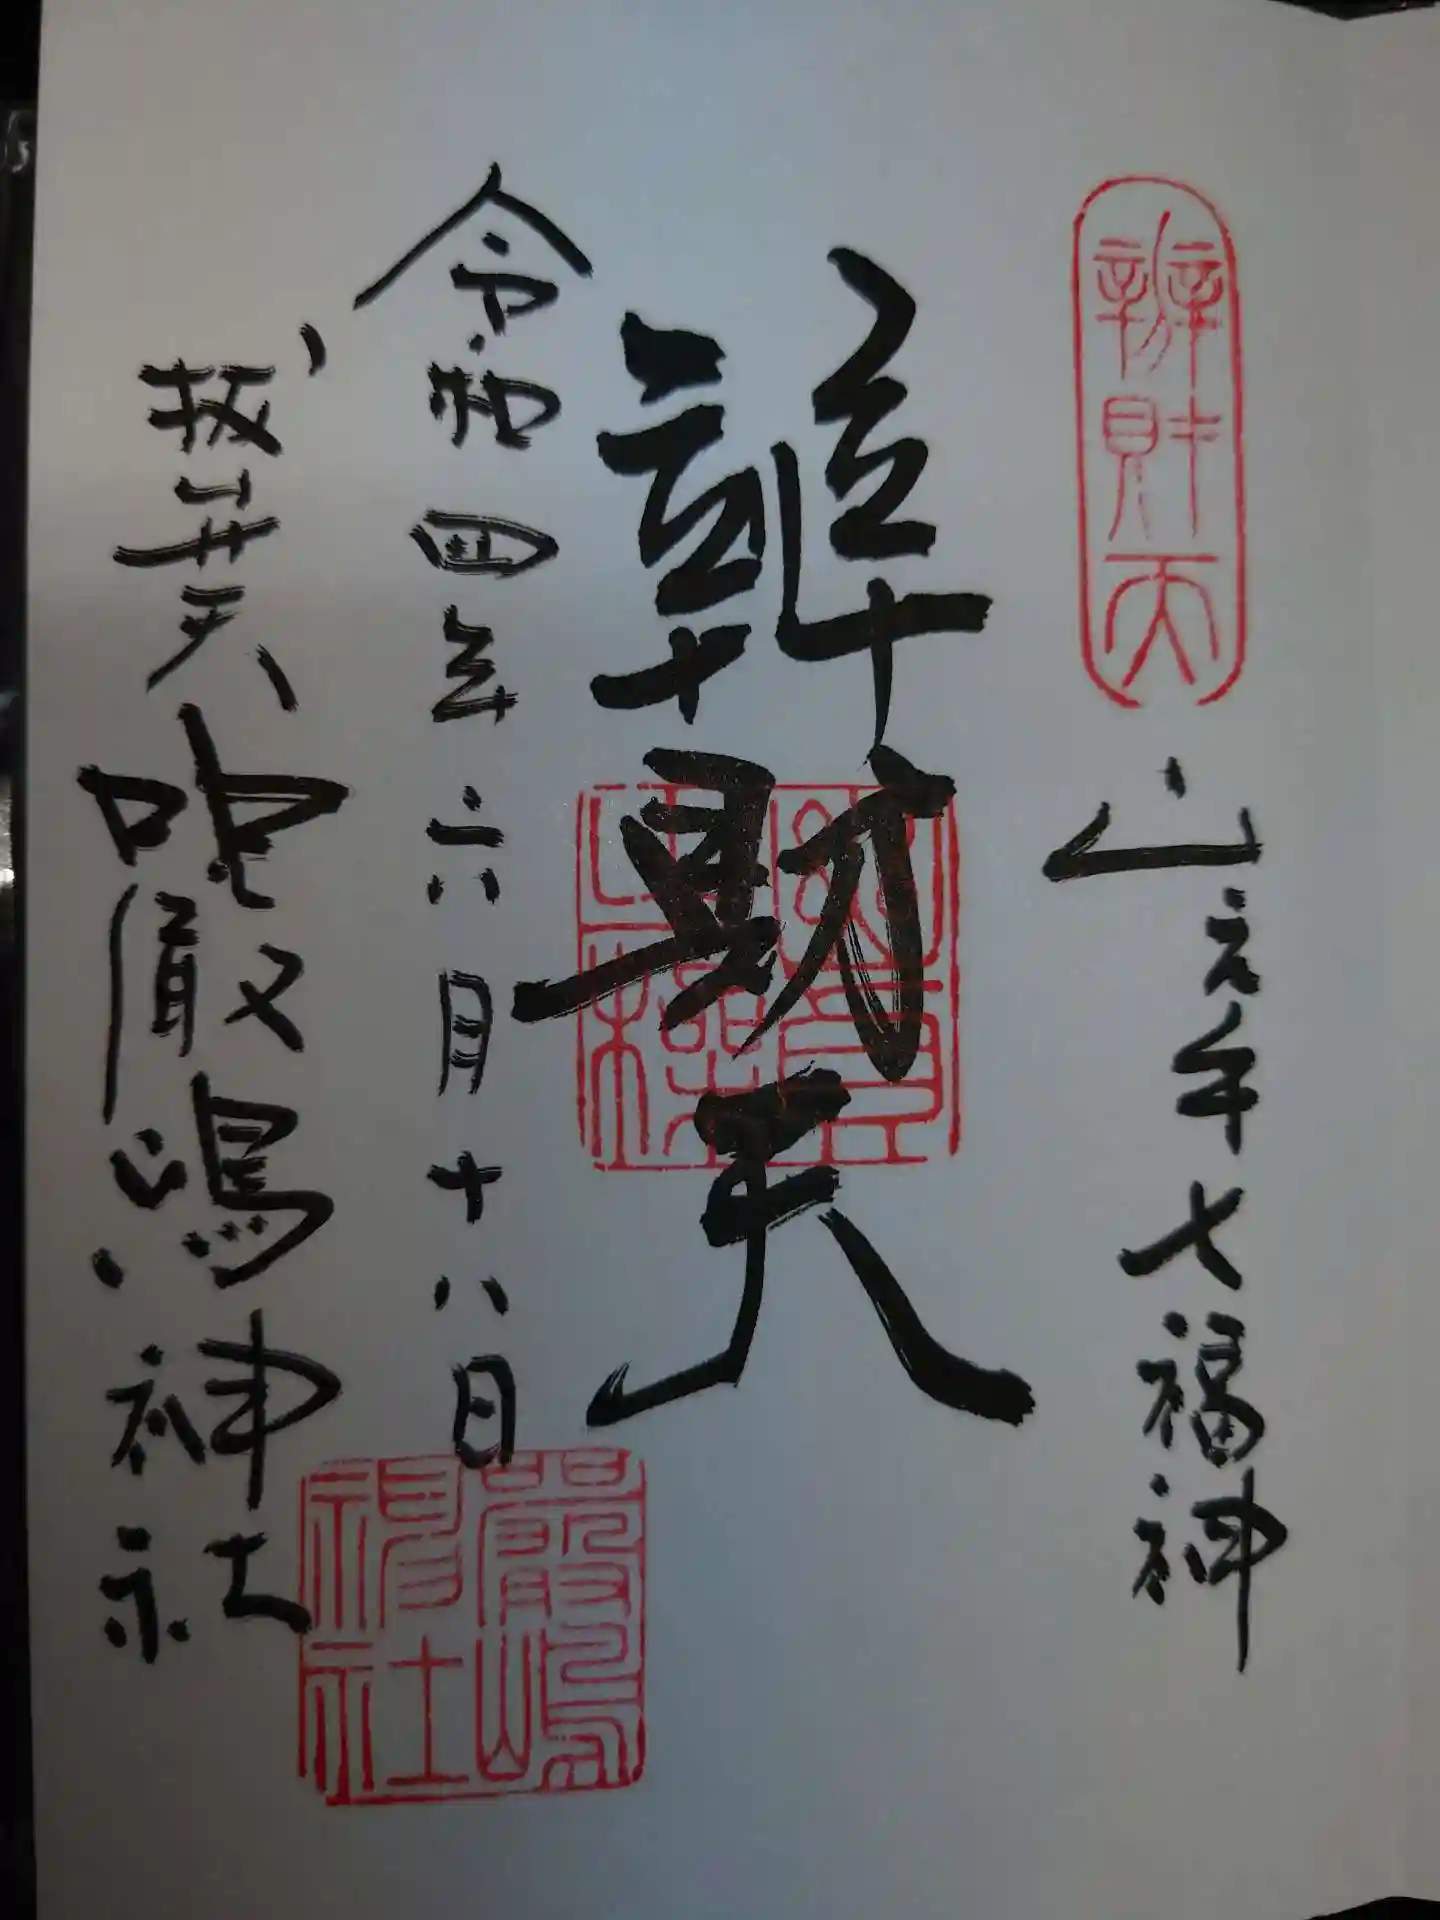 辨財天
山之手七福神
辨財天
令和四年六月十八日
抜弁天 嚴嶋神社
嚴嶋神社